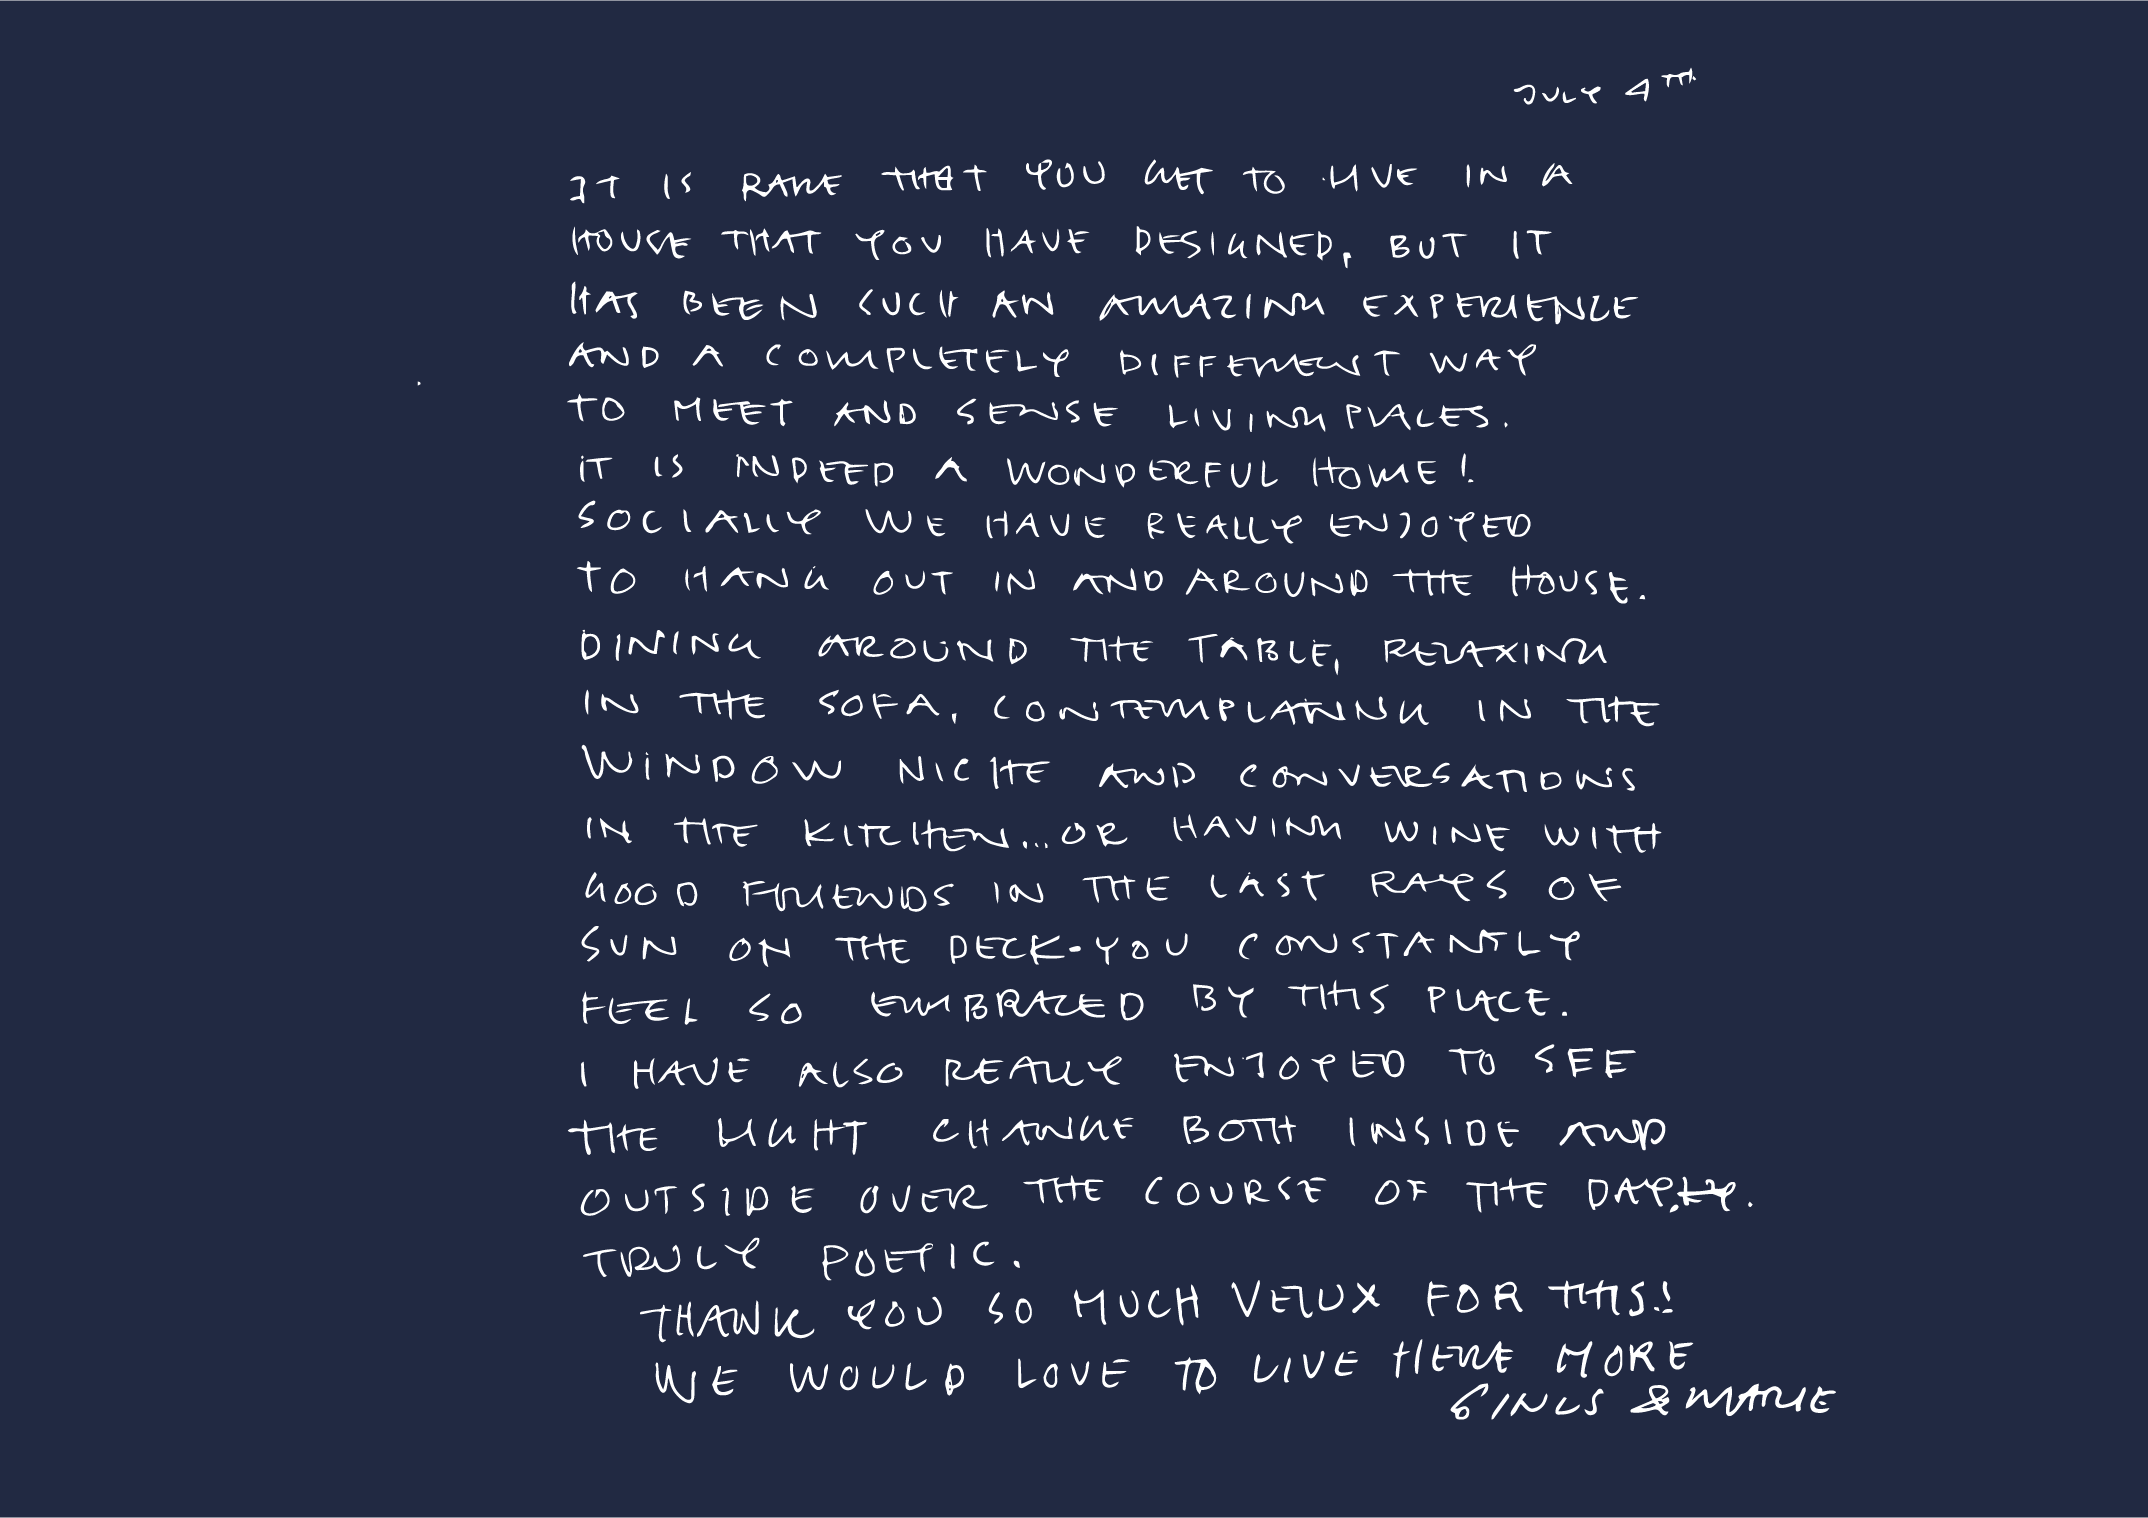 JULY 4TH.
IT IS RARE THAT YOU GET TO LIVE IN A
HOUSE THAT YOU HAVE DESIGNED, BUT IT
HAS BEEN SUCH AN AMAZING EXPERIENCE
AND A COMPLETELY DIFFERENT WAY
TO MEET AND SENSE LIVING PLACES.
IT IS INDEED A WONDERFUL HOME!
SOCIALLY WE HAVE REALLY ENJOYED
TO HANG OUT IN AND AROUND THE HOUSE.
DINING AROUND THE TABLE, RELAXING
IN THE SOFA, CONTEMPLATING IN THE
WINDOW NICHE AND CONVERSATIONS
IN THE KITCHEN... OR HAVING WINE WITH
GOOD FRIENDS IN THE LAST RAYS OF
SUN ON THE DECK - YOU CONSTANTLY
FEEL SO EMBRACED BY THIS PLACE.
I HAVE ALSO REALLY ENJOYED TO SEE
THE LIGHT CHANGE BOTH INSIDE AND
OUTSIDE OVER THE COURSE OF THE DAY.
TRULY POETIC.
THANK YOU SO MUCH VELUX FOR THIS!
WE WOULD LOVE TO LIVE HERE MORE
& MARIE